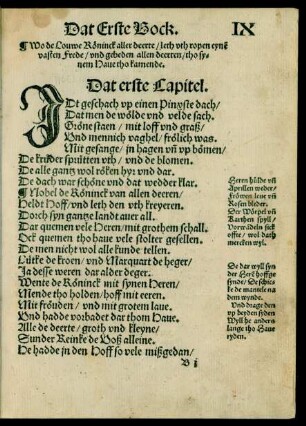 Dat Erste Bock. IX
¶ Wo de Louwe Köninck aller deerte / leth vth ropen eynē
vasten Frede / vnd gebeden allen deerten / tho sy-
nem Haue tho kamende.
Dat erste Capitel.
IDt geschach vp einen Pinxste dach /
Dat men de wölde vnd velde sach.
Gröne staen / mit loff vnd graß /
Vnd mennich vaghel / frölich was.
Mit gesange / in hagen vñ vp bömen /
De krüder sprütten vth / vnd de blomen.
De alle gantz wol röken hyr vnd dar.
De dach war schöne vnd dat wedder klar.
¶ Nobel de Köninck van allen deeren /
Heldt Hoff / vnd leth den vth kreyeren.
Dorch syn gantze landt auer all.
Dar quemen vele Heren / mit grothem schall.
Ock quemen tho haue vele stolter gesellen.
De men nicht wol alle kunde tellen.
Lütke de kroen / vnd Marquart de heger /
Ja desse weren dar alder deger.
Wente de Köninck mit synen Heren /
Mende tho holden / hoff mit eeren.
Mit fröuden / vnd mit grotem laue.
Vnd hadde vorbadet dar thom Haue.
Alle de deerte / groth vnd kleyne /
Sunder Reinke de Voß alleine.
He hadde jn den Hoff so vele mißgedan /
Heren hülde vñ
Aprillen weder /
Fröwen leue vñ
Rosen bleder.
Der Wörpel vñ
Karthen spyll /
Vorwādeln sick
offte / wol dath
mercken wyl.
De dar wyll syn
der Herē hoffge
synde / De schic-
ke de mantele na
dem wynde.
Vnd drage den
vp beyden syden
Wyl he anders
lange tho Haue
ryden.
B j